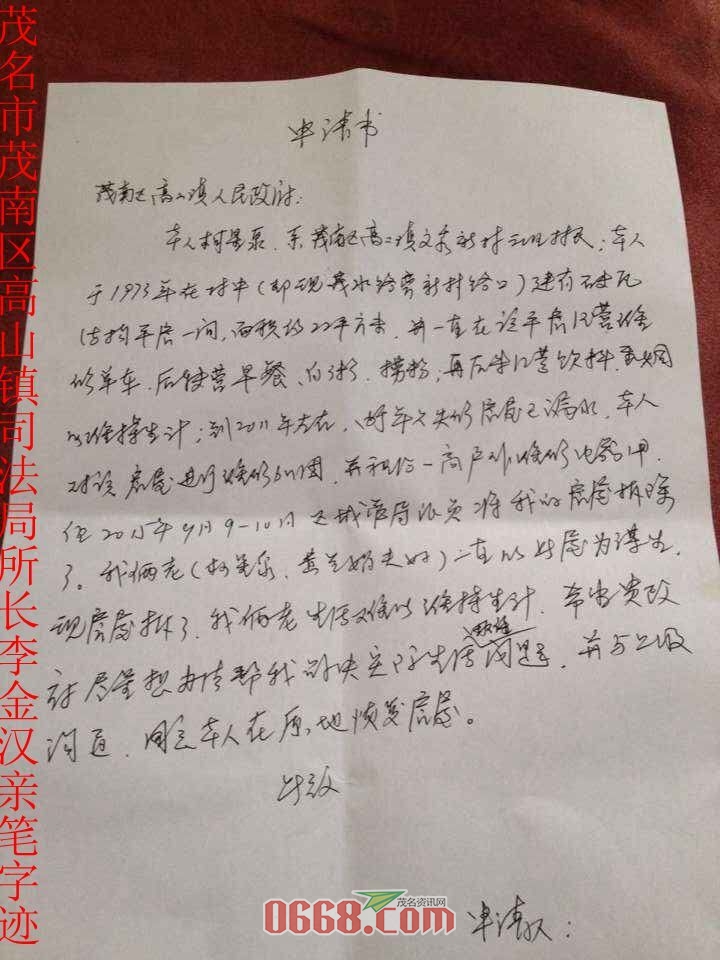 茂名市茂南区高山镇司法局所长李金汉亲笔字迹
申请书
茂南区高山镇人民政府:
本人 系茂南区高山镇文 新村 村民,本人
于1973年在村中(即现茂水路旁新村路口)建有 瓦
结构平房一间,面积约22平方米,并一直在该平房经营维
修单车,后经营早餐、白粥、捞粉,再后来经营饮料、香烟
以维持生计;到2011年左右, 年久失修房屋已漏水,本人
对该房屋进行维修加固,并租给一商户作维修电器用,
但2015年9月9-10日 城管局派员将我的房屋拆除
了。我俩老( 夫妇)一直以此屋为谋生,
现房屋拆了,我俩老生活难以维持生计,希望贵政
府尽量想办法帮我解决实际生活困难问题,并与上级
沟通,同意本人在原地恢复房屋。
此致
申请人:
茂名资讯网
0668.com